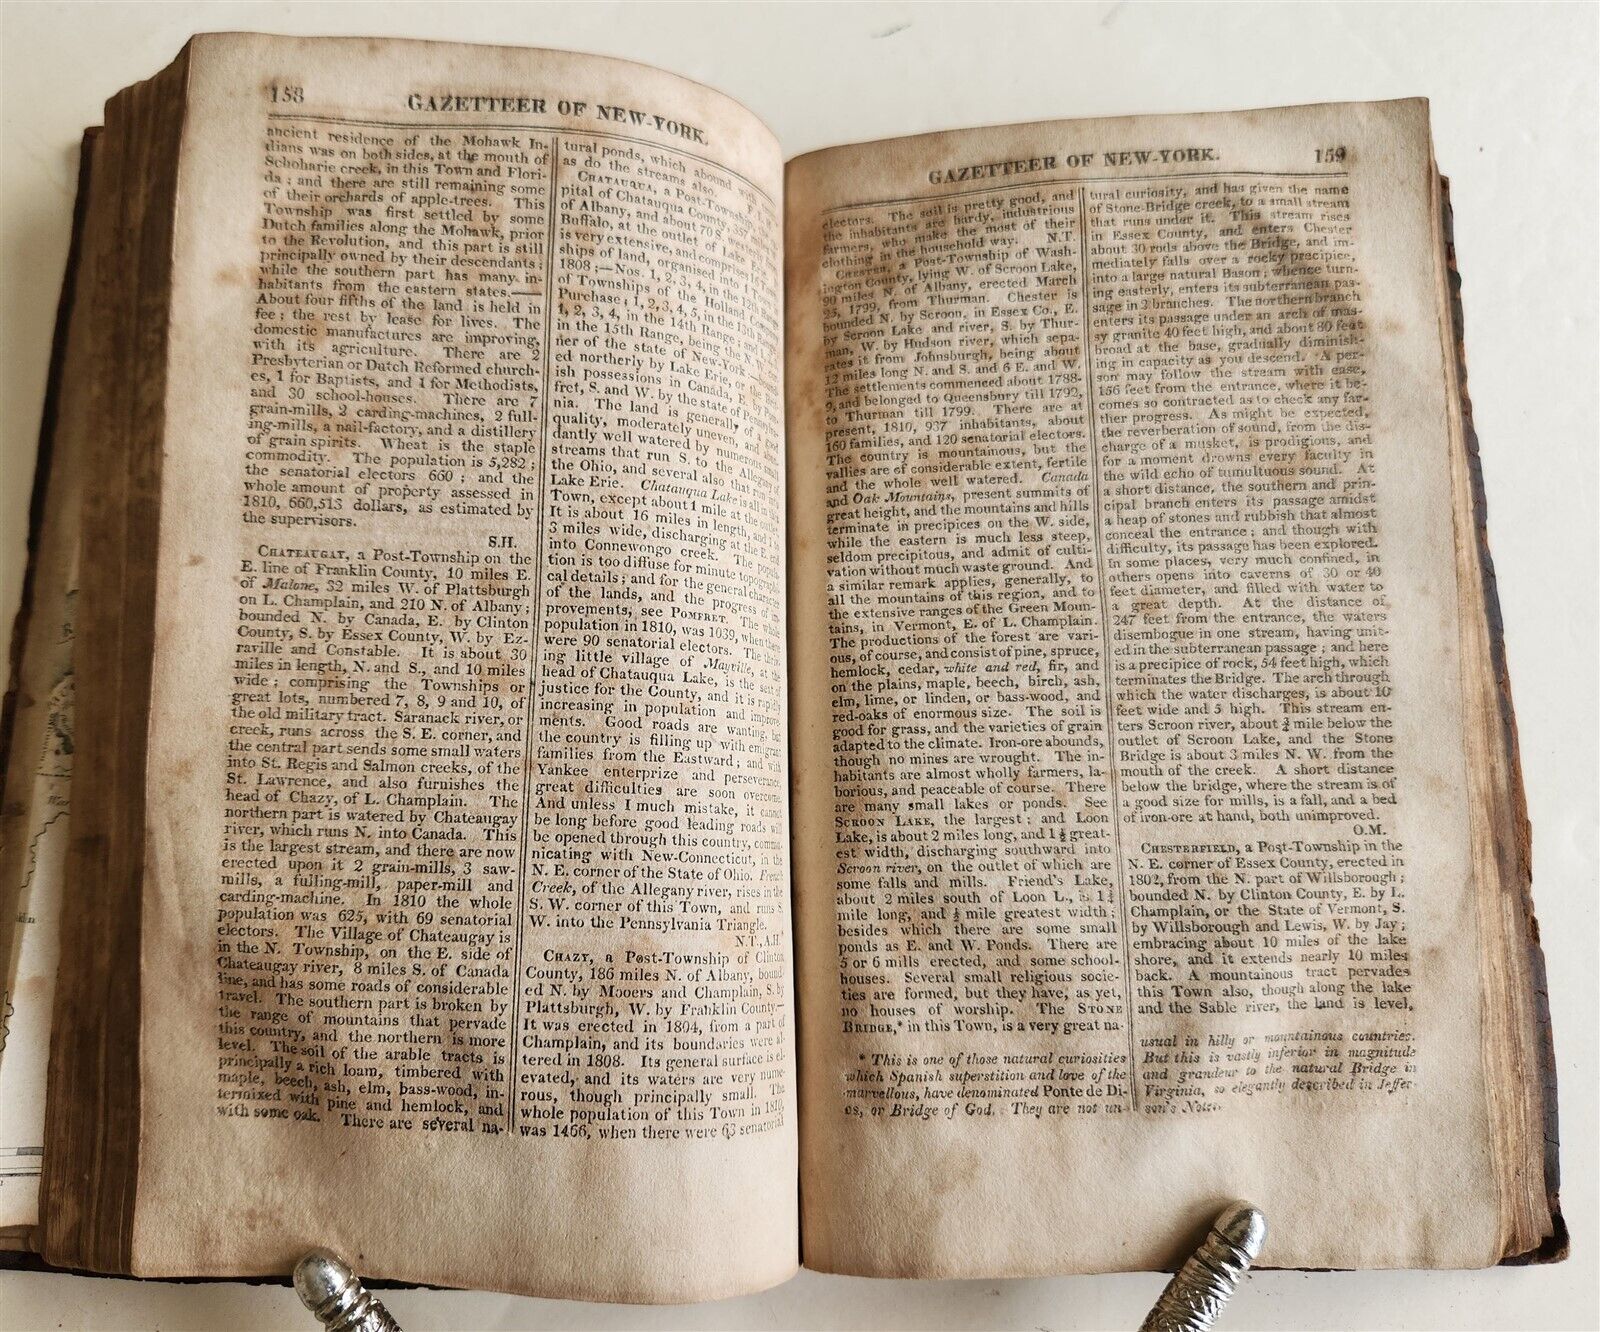 158
GAZETTEER OF NEW-YORK.
ancient residence of the Mohawk In-
dians was on both sides, at the mouth of
Schoharie creek, in this Town and Flori-
da ; and there are still remaining some
of their orchards of apple-trees. This
Township was first settled by some
Dutch families along the Mohawk, prior
to the Revolution, and this part is still
principally owned by their descendants ;
while the southern part has many in-
habitants from the eastern states.—
About four fifths of the land is held in
fee ; the rest by lease for lives. The
domestic manufactures are improving,
with its agriculture. There are 2
Presbyterian or Dutch Reformed church-
es, 1 for Baptists, and 1 for Methodists,
and 30 school-houses. There are 7
grain-mills, 2 carding-machines, 2 full-
ing-mills, a nail-factory, and a distillery
of grain spirits. Wheat is the staple
commodity. The population is 5,282 ;
the senatorial electors 660 ; and the
whole amount of property assessed in
1810, 660,513 dollars, as estimated by
the supervisors.
S.H.
CHATEAUGAY, a Post-Township on the
E. line of Franklin County, 10 miles E.
of Malone, 32 miles W. of Plattsburgh
on L. Champlain, and 210 N. of Albany ;
bounded N. by Canada, E. by Clinton
County, S. by Essex County, W. by Ez-
raville and Constable. It is about 30
miles in length, N. and S., and 10 miles
wide ; comprising the Townships or
great lots, numbered 7, 8, 9 and 10, of
the old military tract. Saranack river, or
creek, runs across the S. E. corner, and
the central part sends some small waters
into St. Regis and Salmon creeks, of the
St. Lawrence, and also furnishes the
head of Chazy, of L. Champlain. The
northern part is watered by Chateaugay
river, which runs N. into Canada. This
is the largest stream, and there are now
erected upon it 2 grain-mills, 3 saw-
mills, a fulling-mill, paper-mill and
carding-machine. In 1810 the whole
population was 625, with 69 senatorial
electors. The Village of Chateaugay is
in the N. Township, on the E. side of
Chateaugay river, 8 miles S. of Canada
line, and has some roads of considerable
travel. The southern part is broken by
the range of mountains that pervade
this country, and the northern is more
level. The soil of the arable tracts is
principally a rich loam, timbered with
maple, beech, ash, elm, bass-wood, in-
termixed with pine and hemlock, and
with some oak. There are several na-
tural ponds, which abound with
as do the streams also.
CHATAUQUA, a Post-Township,
pital of Chatauqua County, 357
of Albany, and about 70 S. westerly from
Buffalo, at the outlet of Lake Erie.
is very extensive, and comprises 14 Town-
ships of land, organised into 1 Town in
1808 ;—Nos. 1, 2, 3, 4, in the 12th Range
of Townships of the Holland Company
Purchase ; 1, 2, 3, 4, 5, in the 13th Range
1, 2, 3, 4, in the 14th Range ; and 1,
in the 15th Range, being the N. W. cor-
ner of the state of New-York.—
ed northerly by Lake Erie, or the Brit-
ish possessions in Canada, E. by Pom-
fret, S. and W. by the state of Pennsylva-
nia. The land is generally of a good
quality, moderately uneven, and abun-
dantly well watered by numerous small
streams that run S. to the Allegany of
the Ohio, and several also that run into
Lake Erie. Chatauqua Lake is all in this
Town, except about 1 mile at the outlet.
It is about 16 miles in length, and 1 to
3 miles wide, discharging at the E. end
into Connewongo creek. The popula-
tion is too diffuse for minute topographi-
cal details ; and for the general character
of the lands, and the progress of im-
provements, see POMFRET. The whole
population in 1810, was 1039, when there
were 90 senatorial electors. The thriv-
ing little village of Mayville, at the
head of Chatauqua Lake, is the seat of
justice for the County, and it is rapidly
increasing in population and improve-
ments. Good roads are wanting, but
the country is filling up with emigrant
families from the Eastward ; and with
Yankee enterprize and perseverance,
great difficulties are soon overcome.
And unless I much mistake, it cannot
be long before good leading roads will
be opened through this country, commu-
nicating with New-Connecticut, in the
N. E. corner of the State of Ohio. French
Creek, of the Allegany river, rises in the
S. W. corner of this Town, and runs S.
W. into the Pennsylvania Triangle.
N.T., A.H.
CHAZY, a Post-Township of Clinton
County, 186 miles N. of Albany, bound-
ed N. by Mooers and Champlain, S. by
Plattsburgh, W. by Franklin County.—
It was erected in 1804, from a part of
Champlain, and its boundaries were al-
tered in 1808. Its general surface is el-
evated, and its waters are very nume-
rous, though principally small. The
whole population of this Town in 1810,
was 1466, when there were 63 senatorial
GAZETTEER OF NEW-YORK.
159
electors. The soil is pretty good, and
the inhabitants are hardy, industrious
farmers, who make the most of their
clothing in the household way. N.T.
CHESTER, a Post-Township of Wash-
ington County, lying W. of Scroon Lake,
90 miles N. of Albany, erected March
25, 1799, from Thurman. Chester is
bounded N. by Scroon, in Essex Co., E.
by Scroon Lake and river, S. by Thur-
man, W. by Hudson river, which sepa-
rates it from Johnsburgh, being about
12 miles long N. and S. and 6 E. and W.
The settlements commenced about 1788-
9, and belonged to Queensbury till 1792,
to Thurman till 1799. There are at
present, 1810, 937 inhabitants, about
160 families, and 120 senatorial electors.
The country is mountainous, but the
vallies are of considerable extent, fertile
and the whole well watered. Canada
and Oak Mountains, present summits of
great height, and the mountains and hills
terminate in precipices on the W. side,
while the eastern is much less steep,
seldom precipitous, and admit of culti-
vation without much waste ground. And
a similar remark applies, generally, to
all the mountains of this region, and to
the extensive ranges of the Green Moun-
tains, in Vermont, E. of L. Champlain.
The productions of the forest are vari-
ous, of course, and consist of pine, spruce,
hemlock, cedar, white and red, fir, and
on the plains, maple, beech, birch, ash,
elm, lime, or linden, or bass-wood, and
red-oaks of enormous size. The soil is
good for grass, and the varieties of grain
adapted to the climate. Iron-ore abounds,
though no mines are wrought. The in-
habitants are almost wholly farmers, la-
borious, and peaceable of course. There
are many small lakes or ponds. See
SCROON LAKE, the largest ; and Loon
Lake, is about 2 miles long, and 1½ great-
est width, discharging southward into
Scroon river, on the outlet of which are
some falls and mills. Friend's Lake,
about 2 miles south of Loon L., is 1¼
mile long, and ½ mile greatest width ;
besides which there are some small
ponds as E. and W. Ponds. There are
5 or 6 mills erected, and some school-
houses. Several small religious socie-
ties are formed, but they have, as yet,
no houses of worship. The STONE
BRIDGE,* in this Town, is a very great na-
* This is one of those natural curiosities
which Spanish superstition and love of the
marvellous, have denominated Ponte de Di-
os, or Bridge of God. They are not un-
tural curiosity, and has given the name
of Stone-Bridge creek, to a small stream
that runs under it. This stream rises
in Essex County, and enters Chester
about 30 rods above the Bridge, and im-
mediately falls over a rocky precipice,
into a large natural Bason ; whence turn-
ing easterly, enters its subterranean pas-
sage in 2 branches. The northern branch
enters its passage under an arch of mas-
sy granite 40 feet high, and about 80 feet
broad at the base, gradually diminish-
ing in capacity as you descend. A per-
son may follow the stream with ease,
156 feet from the entrance, where it be-
comes so contracted as to check any far-
ther progress. As might be expected,
the reverberation of sound, from the dis-
charge of a musket, is prodigious, and
for a moment drowns every faculty in
the wild echo of tumultuous sound. At
a short distance, the southern and prin-
cipal branch enters its passage amidst
a heap of stones and rubbish that almost
conceal the entrance ; and though with
difficulty, its passage has been explored.
In some places, very much confined, in
others opens into caverns of 30 or 40
feet diameter, and filled with water to
a great depth. At the distance of
247 feet from the entrance, the waters
disembogue in one stream, having unit-
ed in the subterranean passage ; and here
is a precipice of rock, 54 feet high, which
terminates the Bridge. The arch through
which the water discharges, is about 10
feet wide and 5 high. This stream en-
ters Scroon river, about ¾ mile below the
outlet of Scroon Lake, and the Stone
Bridge is about 3 miles N. W. from the
mouth of the creek. A short distance
below the bridge, where the stream is of
a good size for mills, is a fall, and a bed
of iron-ore at hand, both unimproved.
O.M.
CHESTERFIELD, a Post-Township in the
N. E. corner of Essex County, erected in
1802, from the N. part of Willsborough ;
bounded N. by Clinton County, E. by L.
Champlain, or the State of Vermont, S.
by Willsborough and Lewis, W. by Jay ;
embracing about 10 miles of the lake
shore, and it extends nearly 10 miles
back. A mountainous tract pervades
this Town also, though along the lake
and the Sable river, the land is level,
usual in hilly or mountainous countries.
But this is vastly inferior in magnitude
and grandeur to the natural Bridge in
Virginia, so elegantly described in Jeffer-
son's Notes.